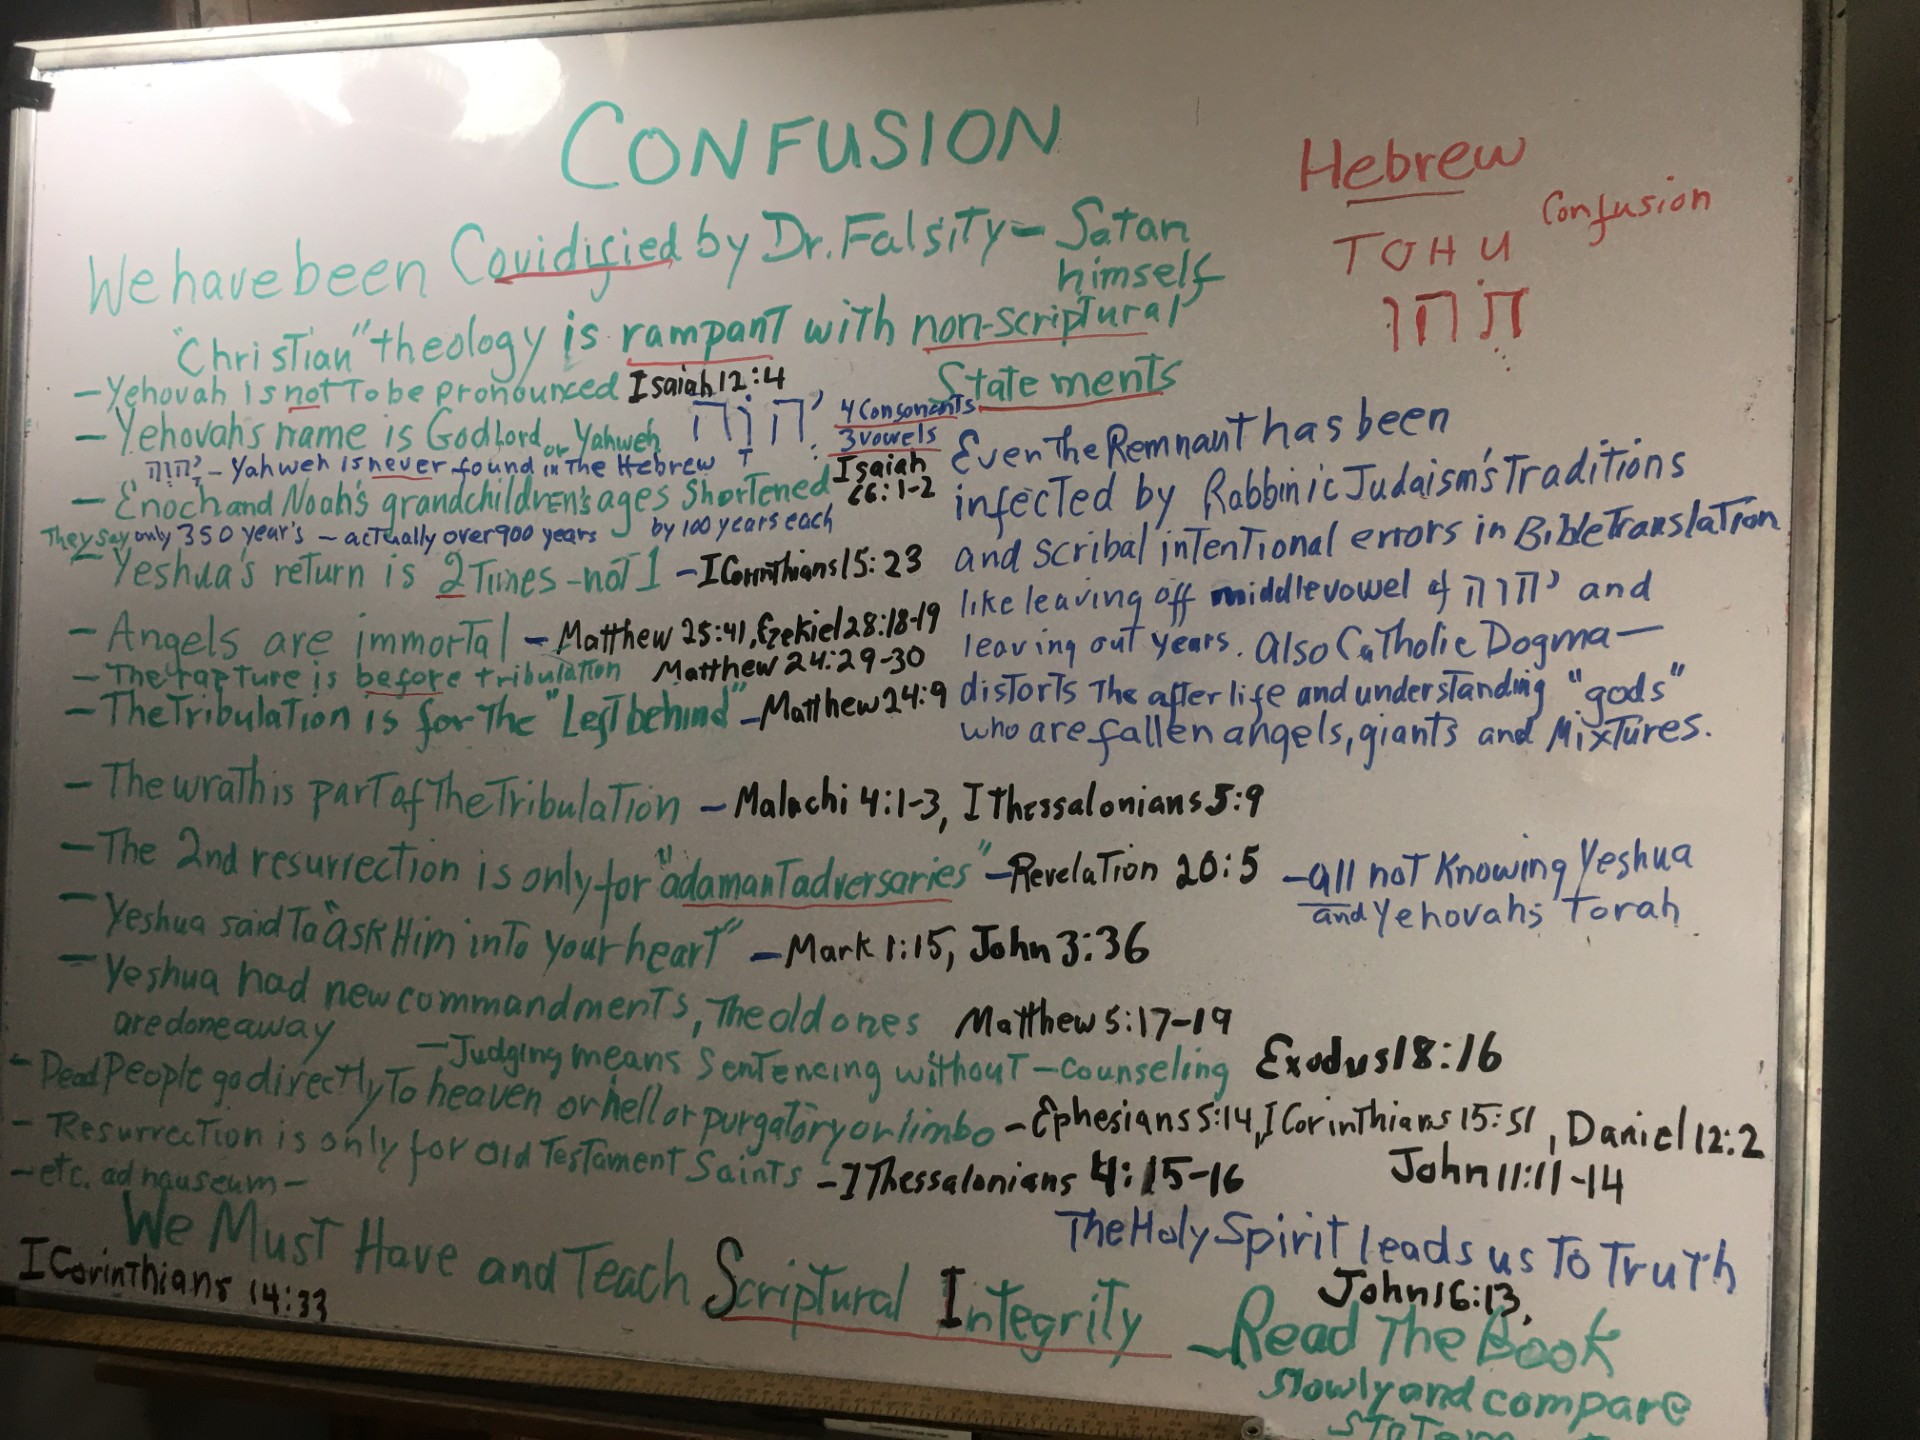 CONFUSION
Hebrew
Confusion
TOHU
תֹהוּ
We have been Covidified by Dr. Falsity – Satan
himself
"Christian" theology is rampant with non-scriptural
Statements
– Yehovah is not to be pronounced Isaiah 12:4
– Yehovah's name is God Lord or Yahweh
4 Consonants
3 vowels
יהוה – Yahweh is never found in The Hebrew
– Enoch and Noah's grandchildren's ages Shortened Isaiah
66:1-2
They say only 350 year's – actually over 900 years by 100 years each
– Yeshua's return is 2 Times – not 1 – I Corinthians 15:23
– Angels are immortal – Matthew 25:41, Ezekiel 28:18-19
– The rapture is before tribulation Matthew 24:29-30
– The Tribulation is for The "Left behind" – Matthew 24:9
Even The Remnant has been
infected by Rabbinic Judaism's Traditions
and scribal intentional errors in Bible Translation
like leaving off middle vowel of יהוה and
leaving out years. Also Catholic Dogma –
distorts The after life and understanding "gods"
who are fallen angels, giants and Mixtures.
– The wrath is part of The Tribulation – Malachi 4:1-3, I Thessalonians 5:9
– The 2nd resurrection is only for "adamant adversaries" – Revelation 20:5 – all not Knowing Yeshua
and Yehovah's Torah
– Yeshua said To "ask Him into your heart" – Mark 1:15, John 3:36
– Yeshua had new commandments, The old ones Matthew 5:17-19
are done away
– Judging means Sentencing without – counseling Exodus 18:16
– Dead People go directly To heaven or hell or purgatory or limbo – Ephesians 5:14, I Corinthians 15:51, Daniel 12:2
John 11:11-14
– Resurrection is only for Old Testament Saints – I Thessalonians 4:15-16
– etc. ad nauseum –
The Holy Spirit leads us To Truth
John 16:13,
We Must Have and Teach Scriptural Integrity
I Corinthians 14:33
– Read The Book
slowly and compare